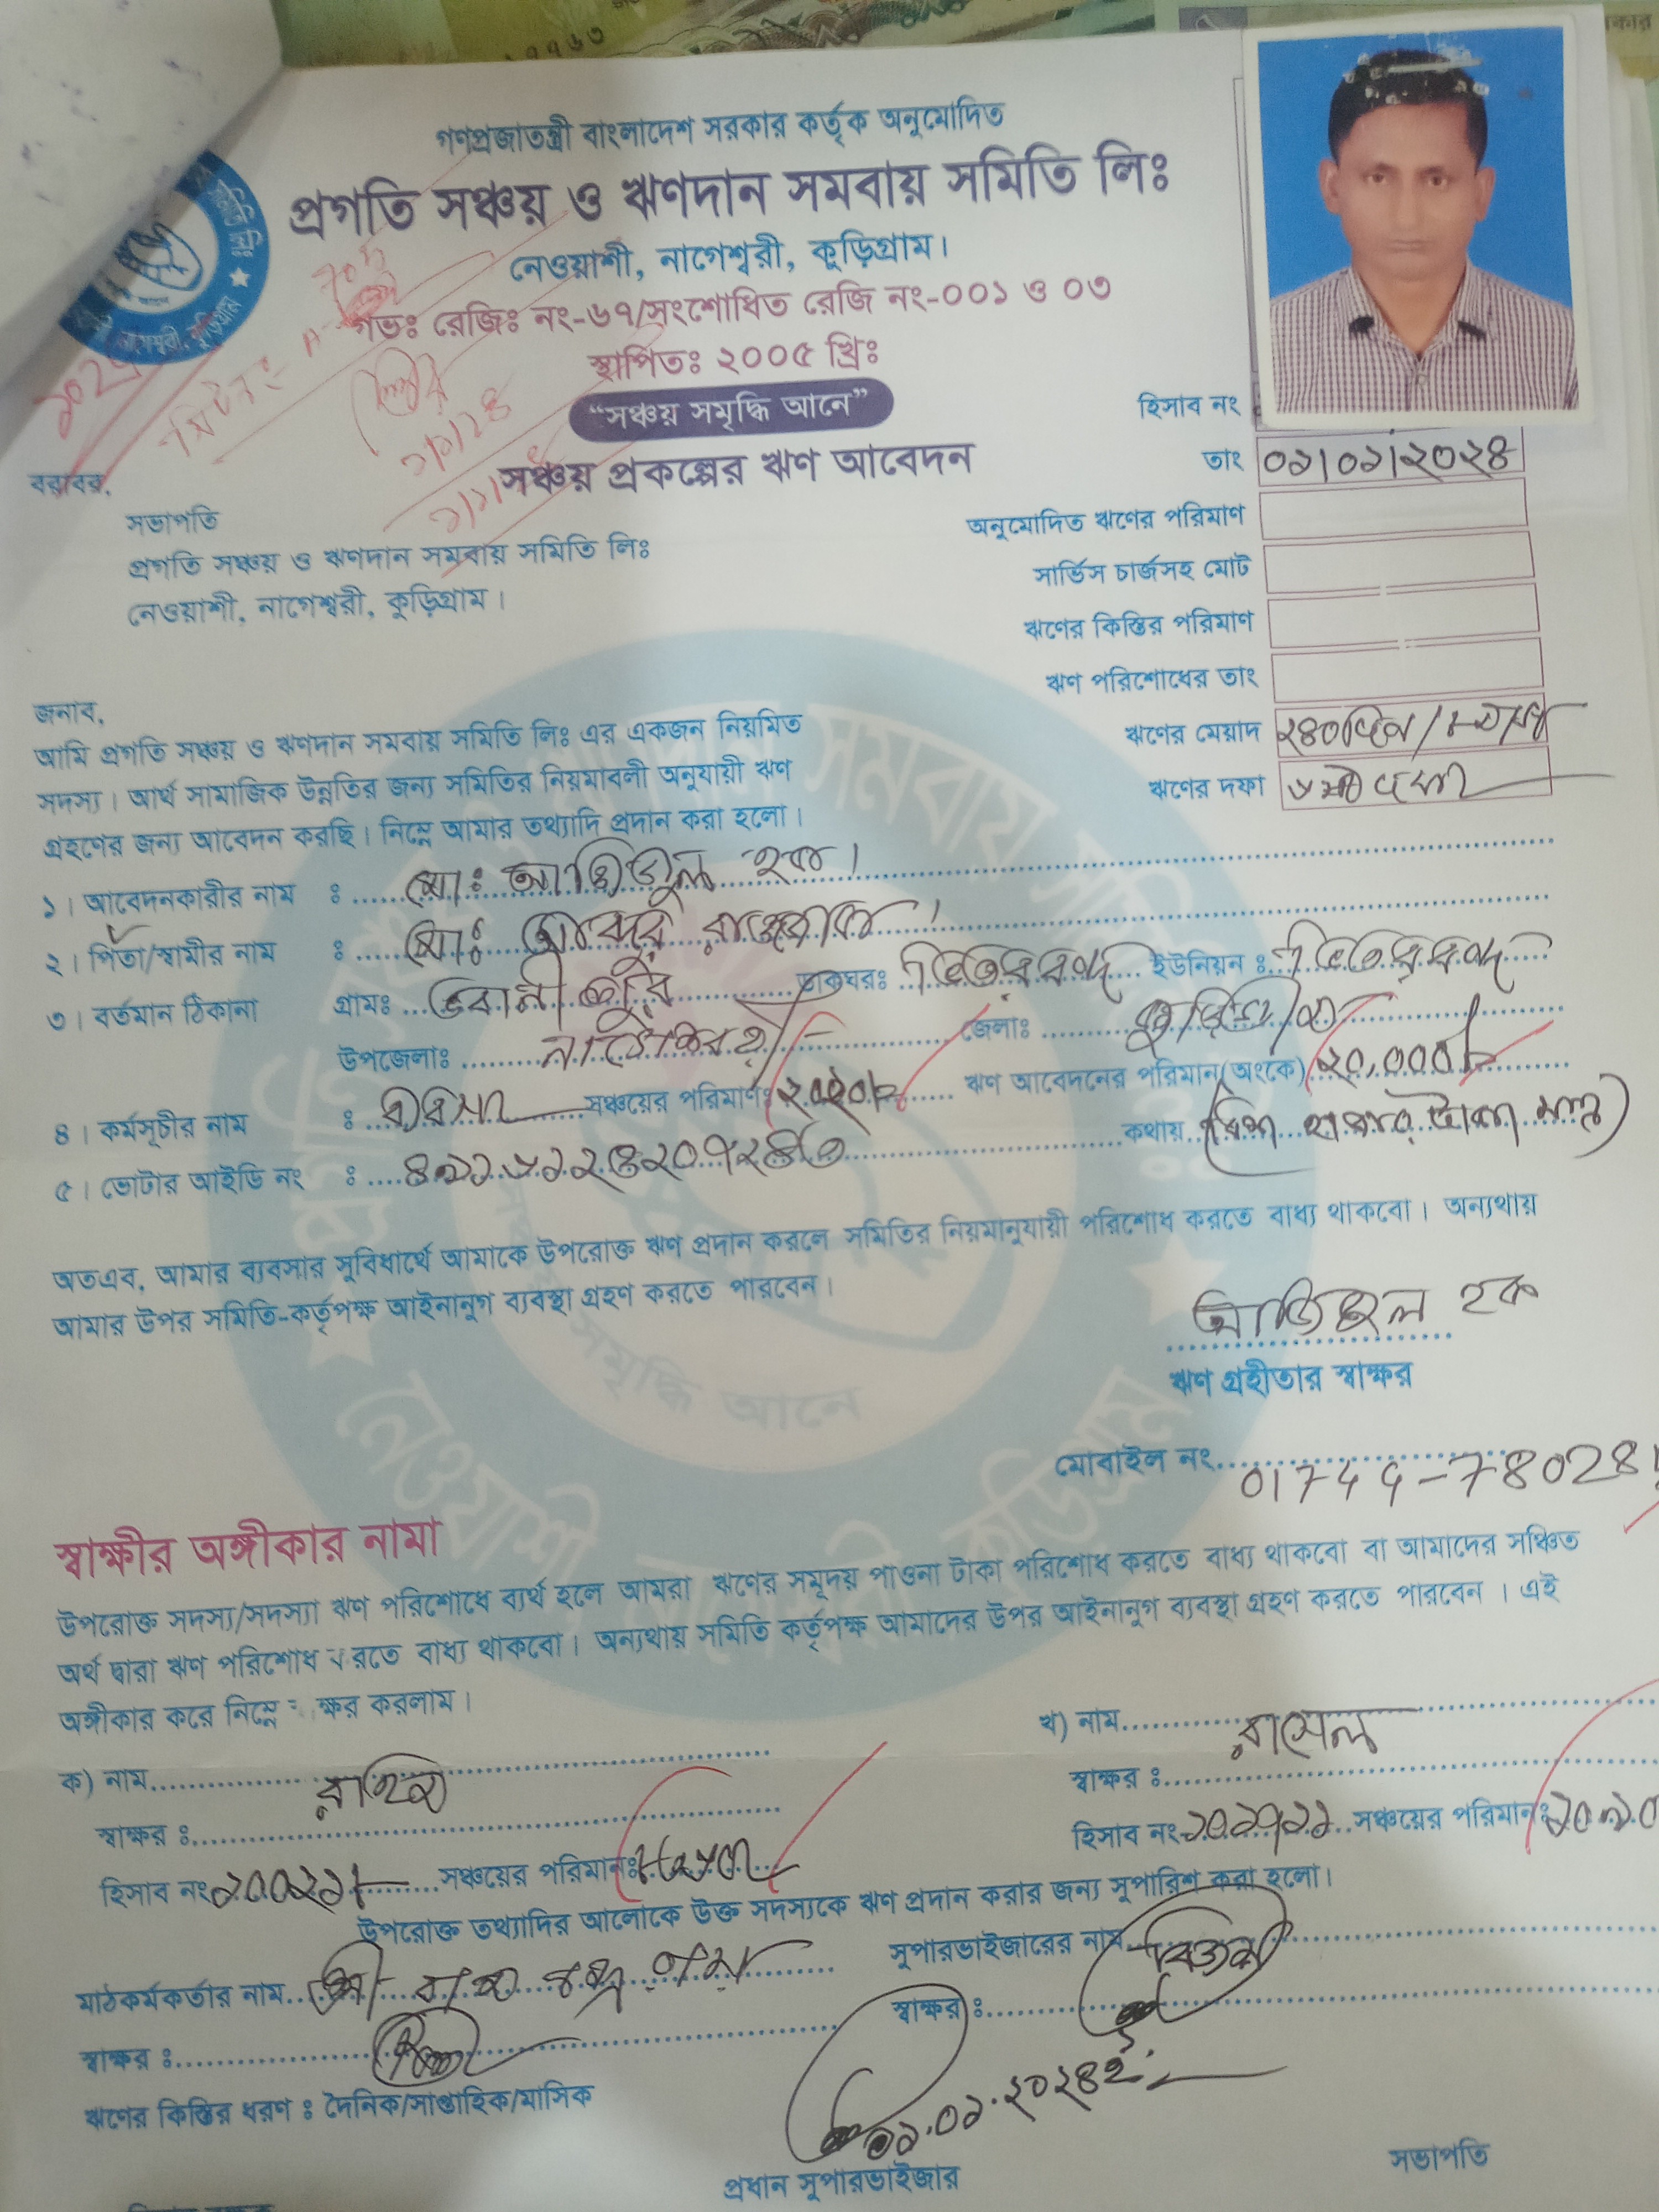 গণপ্রজাতন্ত্রী বাংলাদেশ সরকার কর্তৃক অনুমোদিত
প্রগতি সঞ্চয় ও ঋণদান সমবায় সমিতি লিঃ
নেওয়াশী, নাগেশ্বরী, কুড়িগ্রাম।
গভঃ রেজিঃ নং-৬৭/সংশোধিত রেজি নং-০০১ ও ০৩
স্থাপিতঃ ২০০৫ খ্রিঃ
“সঞ্চয় সমৃদ্ধি আনে”
হিসাব নং
সঞ্চয় প্রকল্পের ঋণ আবেদন
তাং ০১/০১/২০২৪
বরাবর,
সভাপতি
প্রগতি সঞ্চয় ও ঋণদান সমবায় সমিতি লিঃ
নেওয়াশী, নাগেশ্বরী, কুড়িগ্রাম।
অনুমোদিত ঋণের পরিমাণ
সার্ভিস চার্জসহ মোট
ঋণের কিস্তির পরিমাণ
ঋণ পরিশোধের তাং
ঋণের মেয়াদ ২৪০দিন/
ঋণের দফা
জনাব,
আমি প্রগতি সঞ্চয় ও ঋণদান সমবায় সমিতি লিঃ এর একজন নিয়মিত
সদস্য। আর্থ সামাজিক উন্নতির জন্য সমিতির নিয়মাবলী অনুযায়ী ঋণ
গ্রহণের জন্য আবেদন করছি। নিম্নে আমার তথ্যাদি প্রদান করা হলো।
১। আবেদনকারীর নাম : মোঃ আজিজুল হক।
২। পিতা/স্বামীর নাম : মোঃ আব্দুর রাজ্জাক।
৩। বর্তমান ঠিকানা গ্রামঃ ভবানীপুর ডাকঘরঃ ভিতরবন্দ ইউনিয়ন : ভিতরবন্দ
উপজেলাঃ নাগেশ্বরী জেলাঃ কুড়িগ্রাম
৪। কর্মসূচীর নাম : ব্যবসা সঞ্চয়ের পরিমাণঃ ঋণ আবেদনের পরিমান(অংকে) ২০,০০০/=
কথায় (বিশ হাজার টাকা মাত্র)
৫। ভোটার আইডি নং :
অতএব, আমার ব্যবসার সুবিধার্থে আমাকে উপরোক্ত ঋণ প্রদান করলে সমিতির নিয়মানুযায়ী পরিশোধ করতে বাধ্য থাকবো। অন্যথায়
আমার উপর সমিতি-কর্তৃপক্ষ আইনানুগ ব্যবস্থা গ্রহণ করতে পারবেন।
আজিজুল হক
ঋণ গ্রহীতার স্বাক্ষর
মোবাইল নং
স্বাক্ষীর অঙ্গীকার নামা
উপরোক্ত সদস্য/সদস্যা ঋণ পরিশোধে ব্যর্থ হলে আমরা ঋণের সমূদয় পাওনা টাকা পরিশোধ করতে বাধ্য থাকবো বা আমাদের সঞ্চিত
অর্থ দ্বারা ঋণ পরিশোধ করতে বাধ্য থাকবো। অন্যথায় সমিতি কর্তৃপক্ষ আমাদের উপর আইনানুগ ব্যবস্থা গ্রহণ করতে পারবেন। এই
অঙ্গীকার করে নিম্নে ক্ষর করলাম।
ক) নাম
স্বাক্ষর :
হিসাব নং সঞ্চয়ের পরিমানঃ
খ) নাম রাসেল
স্বাক্ষর :
হিসাব নং সঞ্চয়ের পরিমানঃ
উপরোক্ত তথ্যাদির আলোকে উক্ত সদস্যকে ঋণ প্রদান করার জন্য সুপারিশ করা হলো।
মাঠকর্মকর্তার নাম সুপারভাইজারের নাম
স্বাক্ষর : স্বাক্ষর :
ঋণের কিস্তির ধরণ : দৈনিক/সাপ্তাহিক/মাসিক
০১.০১.২০২৪ইং
প্রধান সুপারভাইজার
সভাপতি